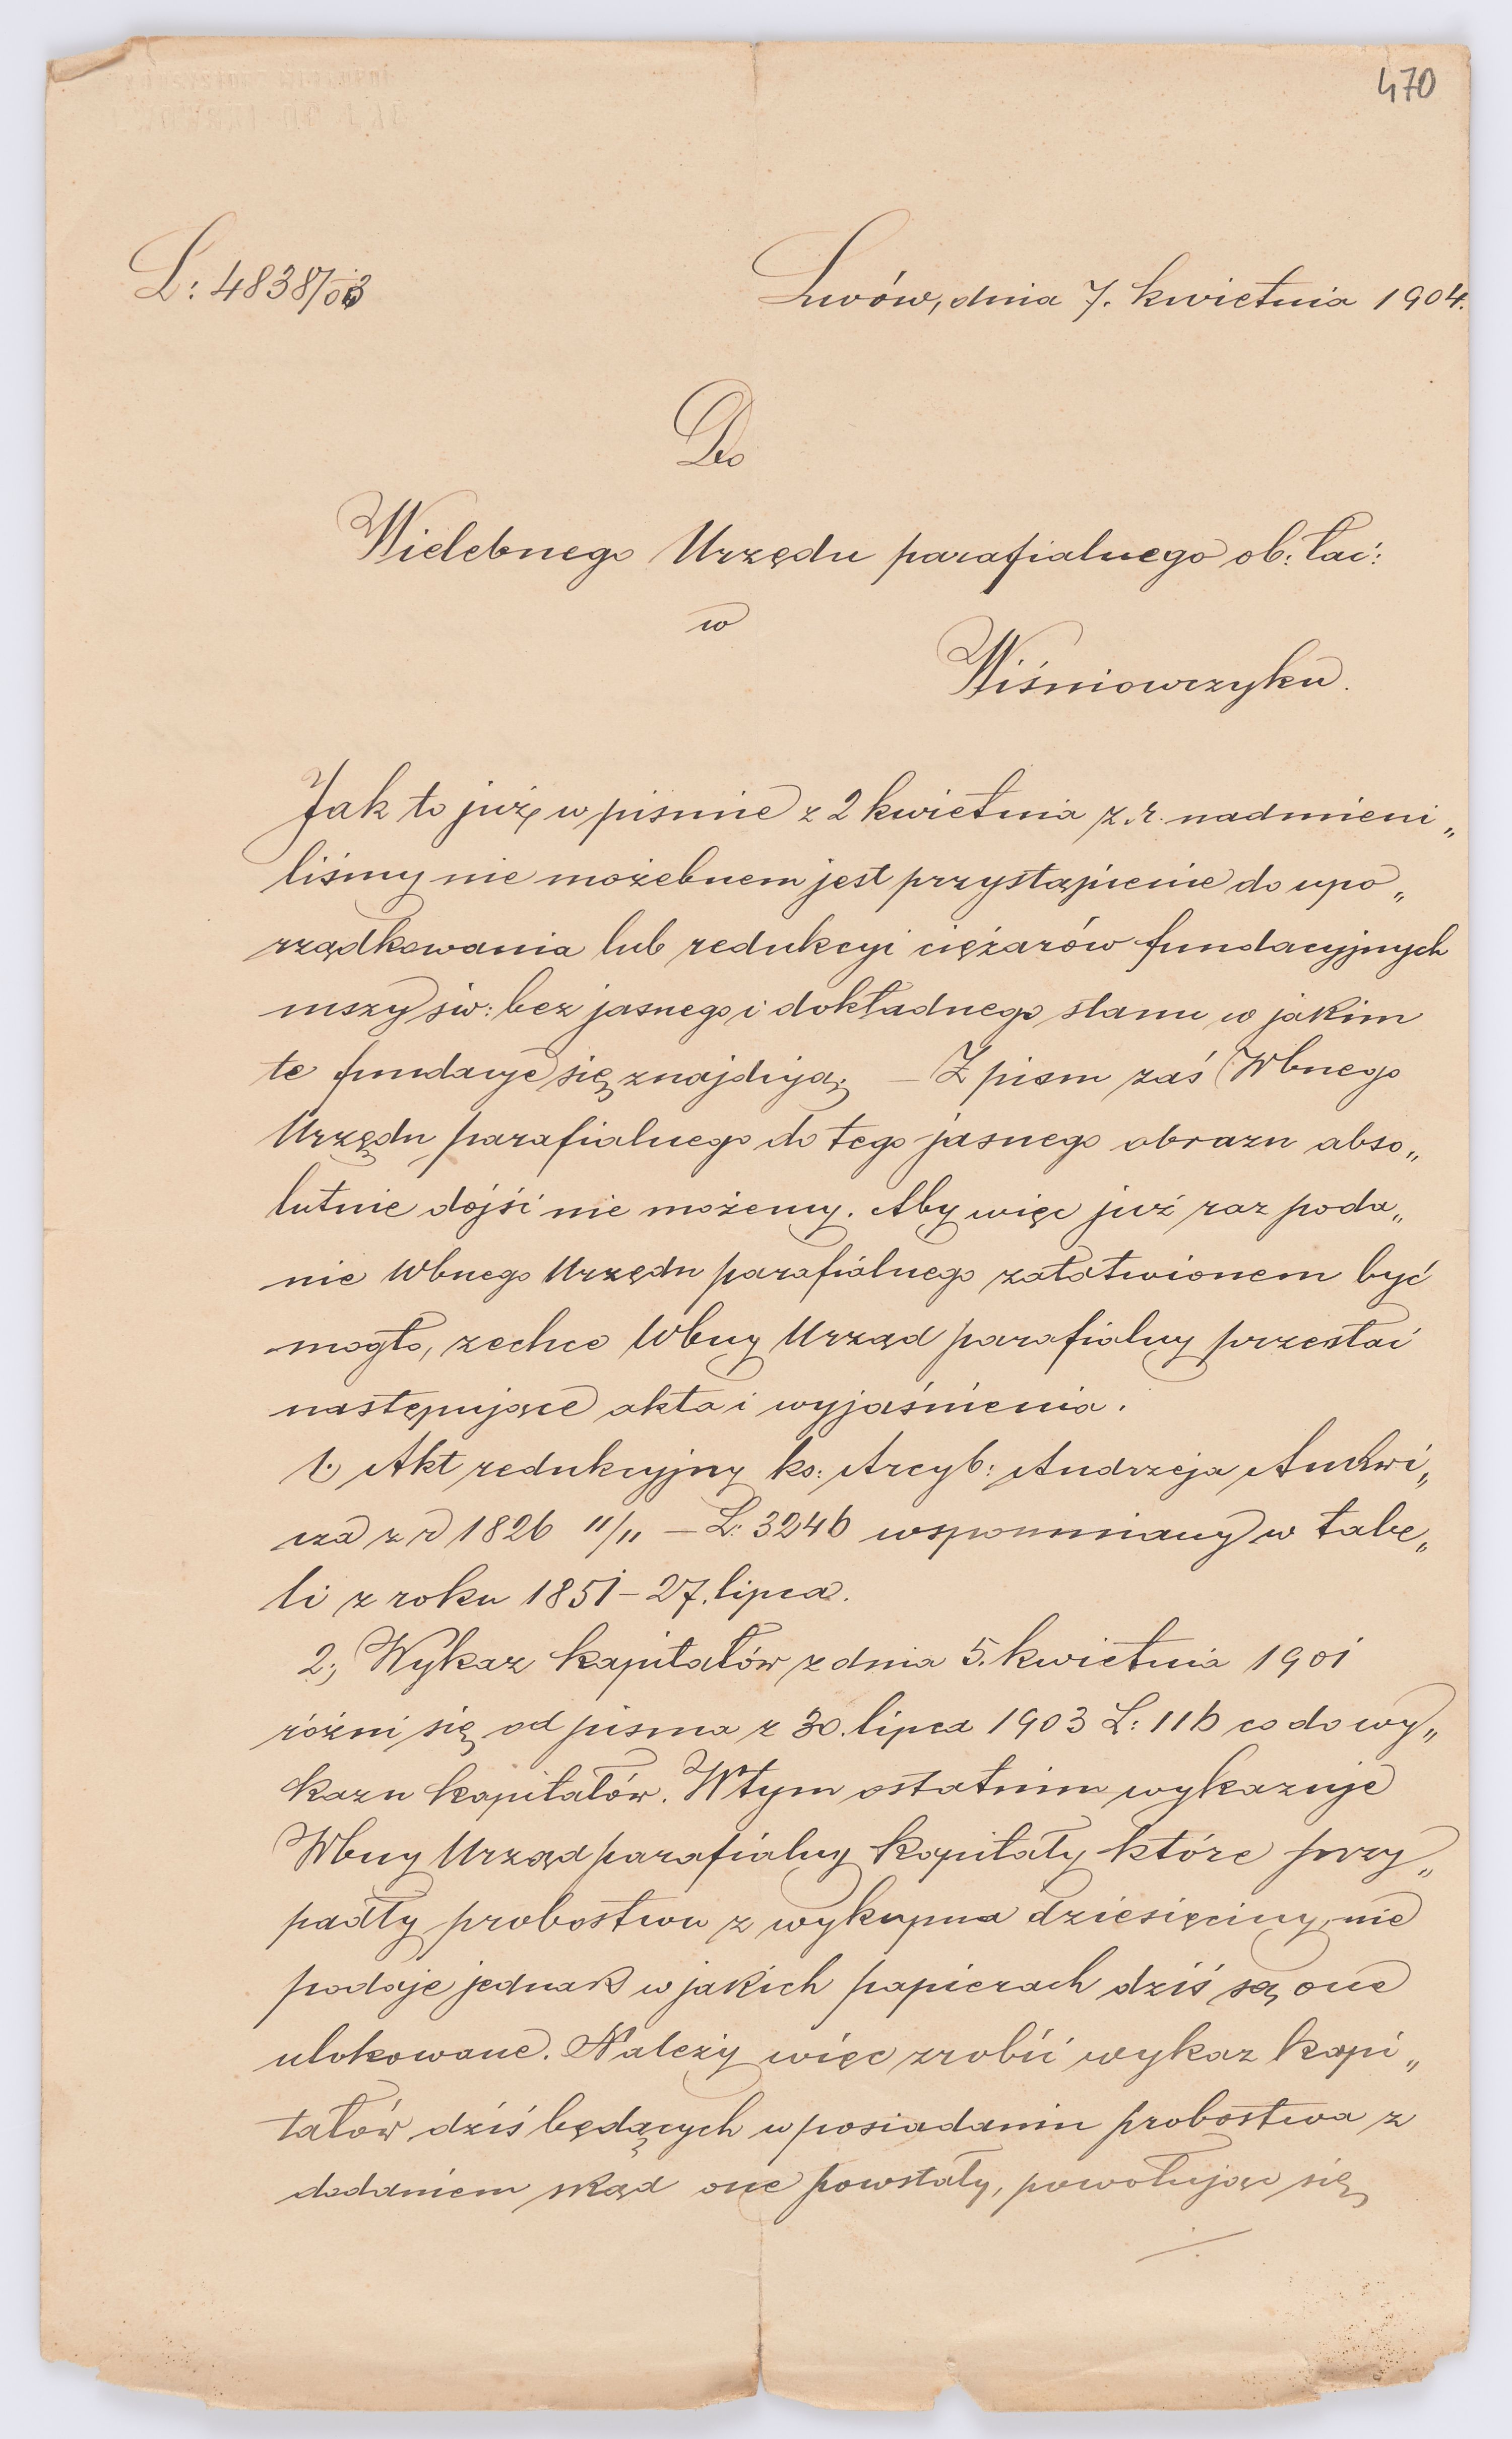 470
L: 4838/03
Lwów, dnia 7. kwietnia 1904.
Do
Wielebnego Urzędu parafialnego ob: łać:
w
Wiśniowczyku.
Jak to już w pismie z 2 kwietnia z. r. nadmieni„
liśmy nie możebnem jest przystąpienie do upo„
rządkowania lub redukcyi ciężarów fundacyjnych
mszy św: bez jasnego i dokładnego stanu w jakim
te fundacye się znajdują; — Z pism zaś Wbnego
Urzędu parafialnego do tego jasnego obrazu abso„
lutnie dojść nie możemy. Aby więc już raz poda„
nie Wbnego Urzędu parafialnego załatwionem być
mogło, zechce Wbny Urząd parafialny przesłać
następujące akta i wyjaśnienia.
1.) Akt redukcyjny ks: Arcyb: Andrzeja Ankwi„
cza z r 1826 11/11 – L: 3246 wspomniany w tabe„
li z roku 1851 – 27. lipca.
2.) Wykaz kapitałów z dnia 5. kwietnia 1901
różni się od pisma z 30. lipca 1903 L: 116 co do wy„
kazu kapitałów. W tym ostatnim wykazuje
Wbny Urząd parafialny kapitały które przy„
padły probostwu z wykupna dziesięciny, nie
podaje jednak w jakich papierach dziś są one
ulokowane. Należy więc zrobić wykaz kapi„
tałów dziś będących w posiadaniu probostwa z
dodaniem skąd one powstały, powołując się
./.